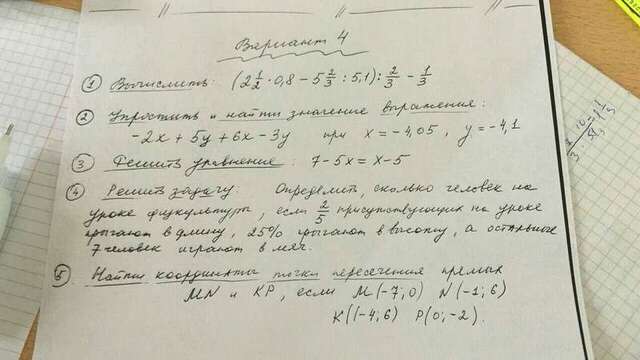 Вариант 4
① Вычислить: (2 1/2 · 0,8 − 5 2/3 : 5,1) : 2/3 − 1/3
② Упростить и найти значение выражения:
−2x + 5y + 6x − 3y при x = −4,05, y = −4,1
③ Решить уравнение: 7 − 5x = x − 5
④ Решить задачу: Определить, сколько человек на
уроке физкультуры, если 2/5 присутствующих на уроке
прыгают в длину, 25% прыгают в высоту, а остальные
7 человек играют в мяч.
⑤ Найти координаты точки пересечения прямых
MN и KP, если M(−7; 0) N(−1; 6)
K(−4; 6) P(0; −2).